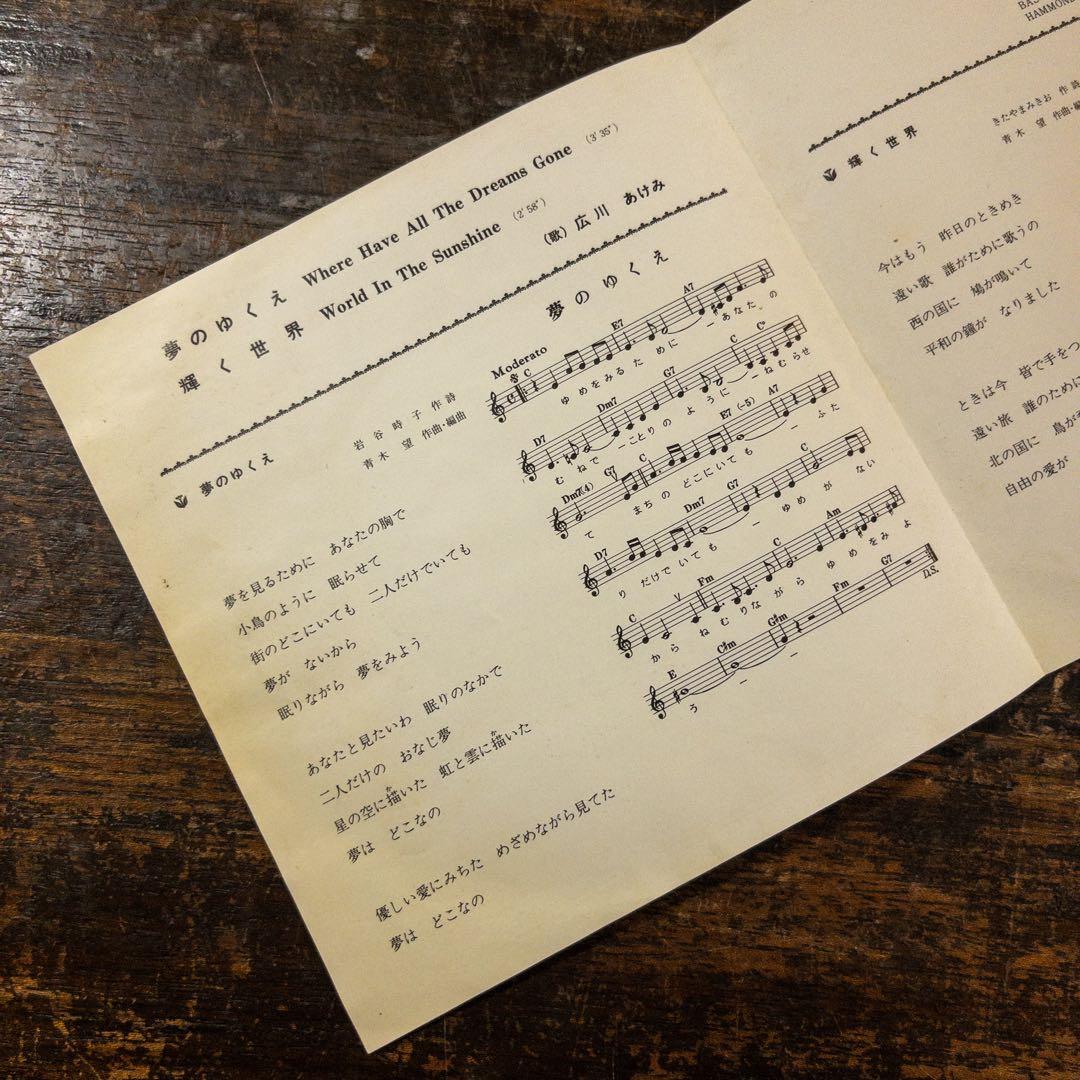 夢のゆくえ Where Have All The Dreams Gone (3′35″)
輝く世界 World In The Sunshine (2′58″)
(歌) 広川 あけみ
夢のゆくえ
岩谷時子 作詩
青木 望 作曲・編曲
夢を見るために あなたの胸で
小鳥のように 眠らせて
街のどこにいても 二人だけでいても
夢が ないから
眠りながら 夢をみよう
あなたと見たいわ 眠りのなかで
二人だけの おなじ夢
星の空に描いた 虹と雲に描いた
夢は どこなの
優しい愛にみちた めざめながら見てた
夢は どこなの
夢のゆくえ
Moderato
C E7 A7
ゆめをみるた めに ーあなた の
D7 Dm7 G7 C C°
むねで ーことりの ように ーねむらせ
Dm7(4) G7 C E7(-5) A7
て まちの どこにいても ーふた
D7 Dm7 G7
りだけでいても ー ゆめが ない
C Fm C Am
から ねむりながら ゆめをみよ
E C#m G#m Fm G7
う ー ー
D.S.
HAMMOND
輝く世界
きたやまみきお 作詩
青木 望 作曲・編
今はもう 昨日のときめき
遠い歌 誰がために歌うの
西の国に 鳩が鳴いて
平和の鐘が なりました
ときは今 皆で手をつ
遠い旅 誰のために
北の国に 鳥が
自由の愛が